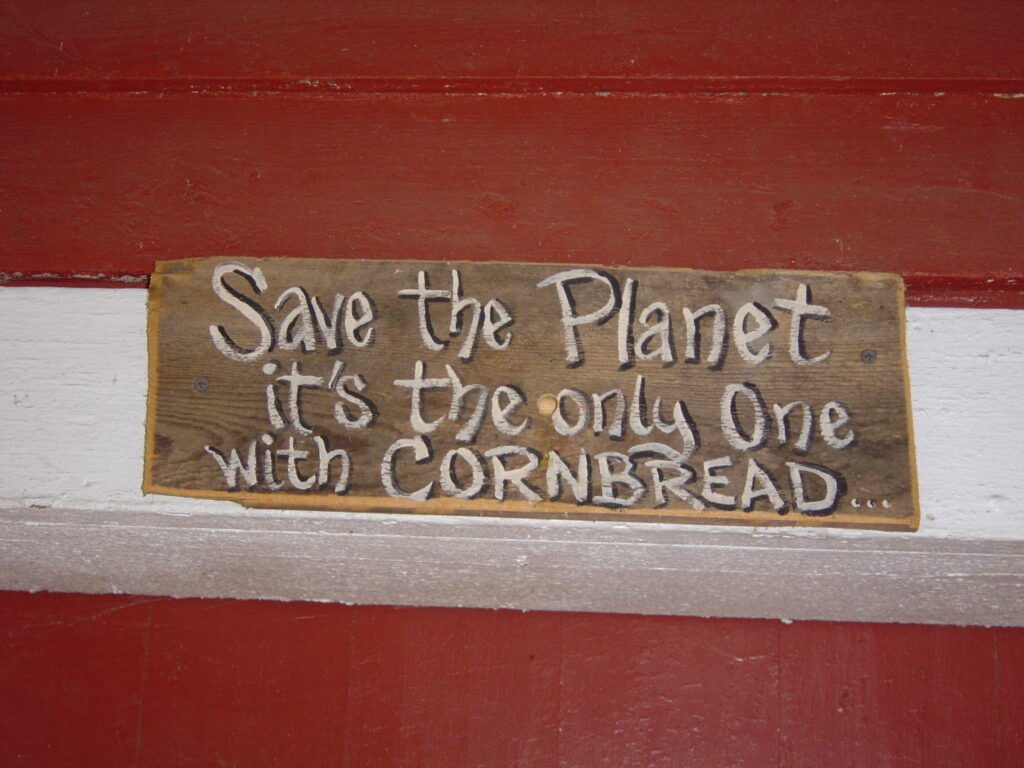 Save the Planet
it's the only One
with CORNBREAD...